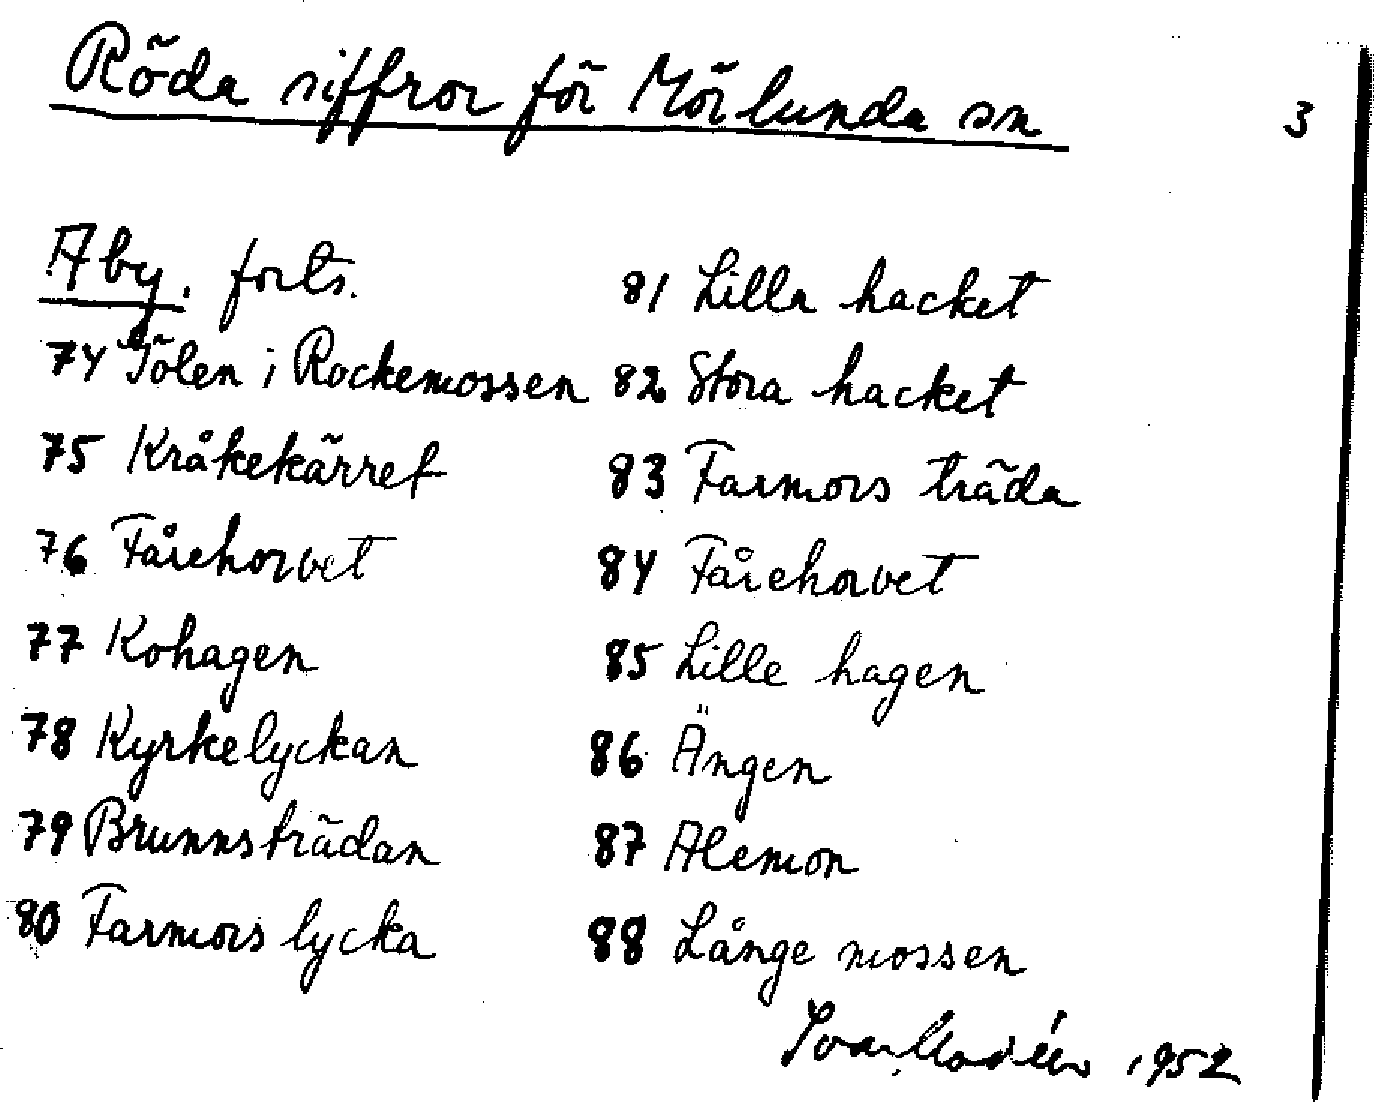 Röda siffror för Mörlunda sn
3
Åby. forts.
74 Tölen i Rockemossen
75 Kråkekärret
76 Fårehorvet
77 Kohagen
78 Kyrkelyckan
79 Brunnsträdan
80 Farmors lycka
81 Lilla hacket
82 Stora hacket
83 Farmors träda
84 Fårehorvet
85 Lille hagen
86 Ängen
87 Alemon
88 Långe mossen
Ivar Modéer 1952